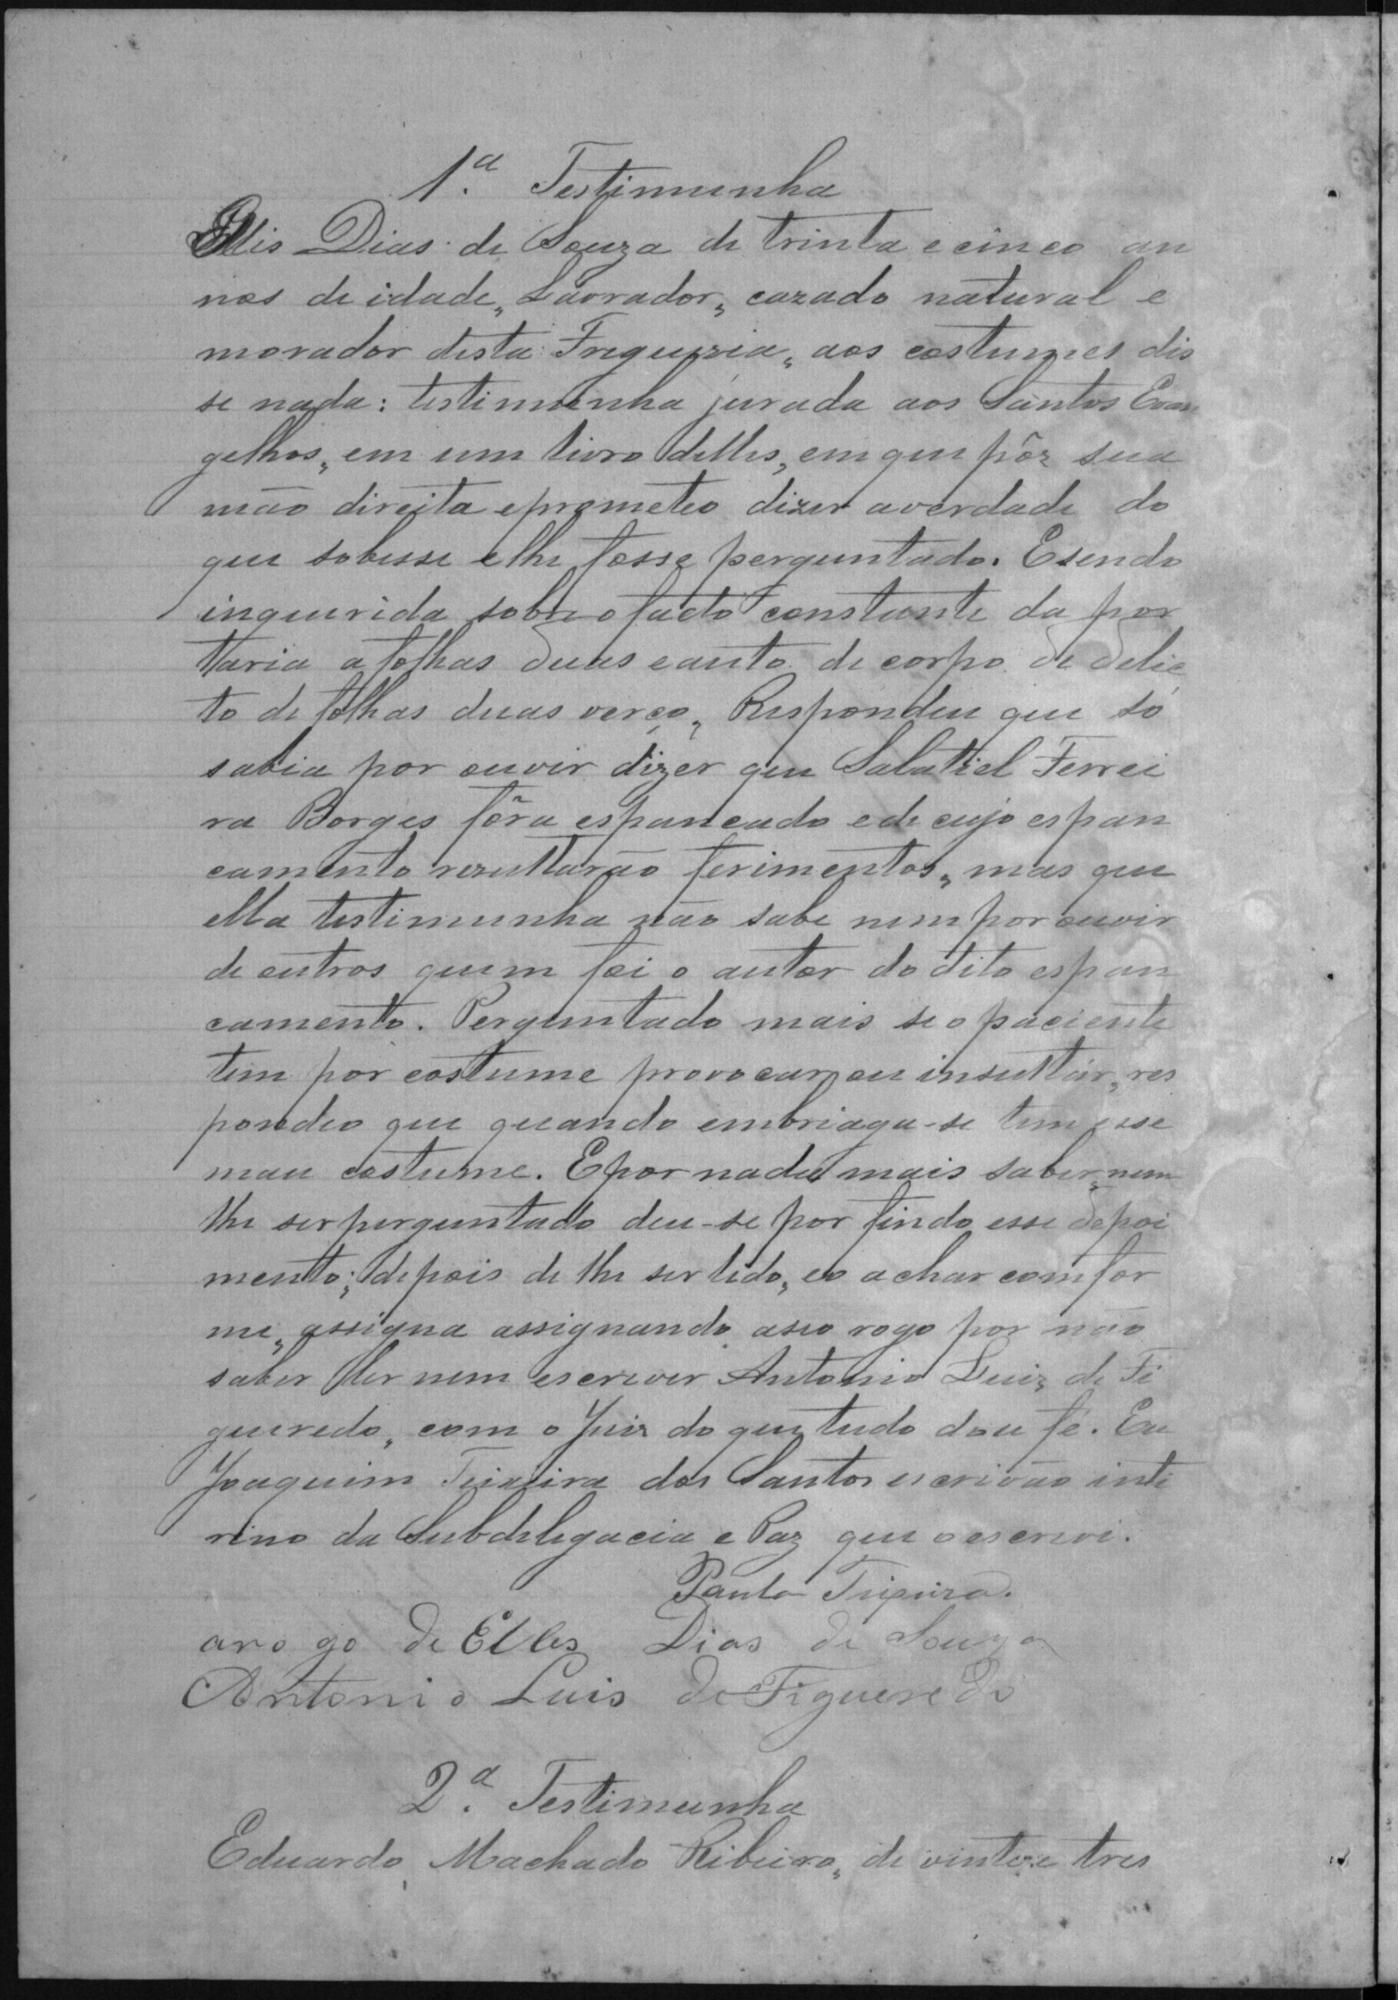 1.ª Testimunha
Ellis Dias de Souza de trinta e cinco an
nos de idade, Lavrador, cazado natural e
morador desta Freguezia, aos costumes dis
se nada: testimunha jurada aos Santos Evan
gelhos, em um livro delles, em que pôz sua
mão direita e prometeo dizer a verdade do
que sobesse e lhe fosse perguntado. E sendo
inquerida sobre o facto constante da por
taria a folhas duas e auto de corpo de delic
to de folhas duas verço, Respondeu que só
sabia por ouvir dizer que Salatiel Ferrei
ra Borges fôra espancado e de cujo espan
camento rezultarão ferimentos, mas que
ella testimunha não sabe nem por ouvir
de outros quem foi o autor do dito espan
camento. Perguntado mais se o paciente
tem por costume provocar ou insultar, res
pondeo que quando embriaga-se tem esse
mau costume. E por nada mais saber, nem
lhe ser perguntado deu-se por findo esse depoi
mento; depois de lhe ser lido, eo achar comfor
me, assigna assignando aseo rogo por não
saber ler nem escrever Antonio Luiz de Fi
gueredo, com o Juiz do que tudo dou fé. Eu
Joaquim Teixeira dos Santos escrivão inte
rino da Subdelegacia e Paz que o escrevi.
Paula Teixeira.
arogo de Elles Dias de Souza
Antonio Luis de Figueredo
2.ª Testimunha
Eduardo Machado Ribeiro, de vinte e tres